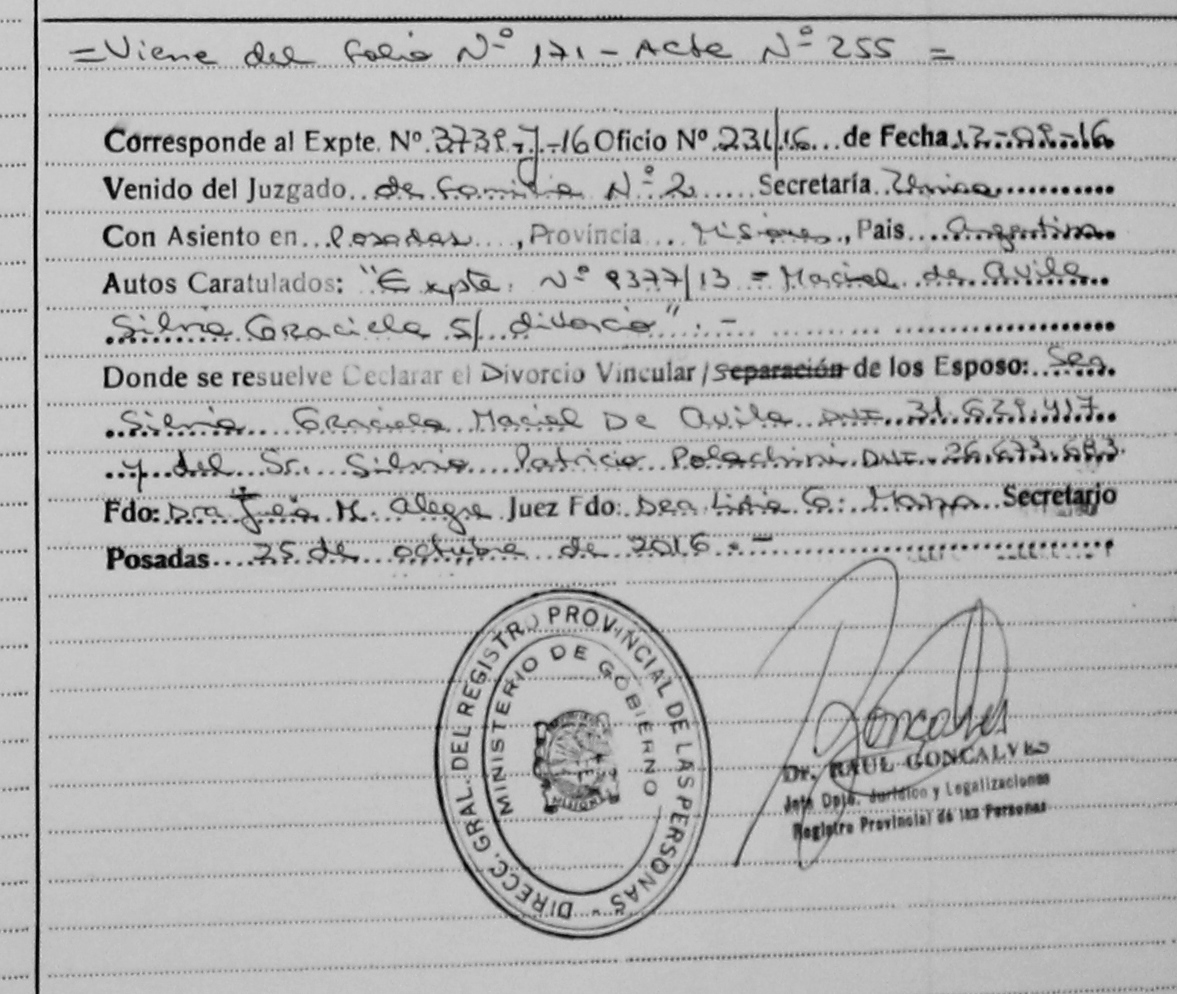 = Viene del folio Nº 171 - Acta Nº 255 =
Corresponde al Expte. Nº 3739-J-16 Oficio Nº 231/16 de Fecha
Venido del Juzgado de Familia Nº 2 Secretaría Unica
Con Asiento en Posadas, Provincia Misiones, Pais Argentina
Autos Caratulados: "Expte. Nº 9377/13 = Maciel de Avila
Silvia Graciela S/ divorcio". -
Donde se resuelve Declarar el Divorcio Vincular / Separación de los Esposo: Sra.
Silvia Graciela Maciel De Avila DNI
y del Sr. Silvio Patricio Polachini DNI 26.673.683.
Fdo: Dra M. Alegre Juez Fdo: Dra Lidia G. Secretario
Posadas 25 de octubre de 2016. -
DIRECC. GRAL. DEL REGISTRO PROVINCIAL DE LAS PERSONAS
MINISTERIO DE GOBIERNO
MISIONES
Dr. RAUL GONCALVES
Jefe Dpto. Jurídico y Legalizaciones
Registro Provincial de las Personas